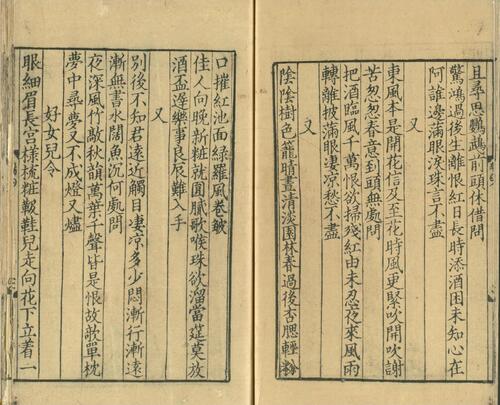 且尋思鸚鵡前頭休借問
驚鴻過後生離恨紅日長時添酒困未知心在
阿誰邊滿眼淚珠言不盡
又
東風本是開花信及至花時風更緊吹開吹謝
苦怱怱春意到頭無處問
把酒臨風千萬恨欲掃殘紅由未忍夜來風雨
轉離披滿眼凄凉愁不盡
又
陰陰樹色籠晴晝清淡園林春過後杏腮輕粉
日摧紅池面綠羅風卷皺
佳人向晚新粧就圓膩歌喉珠欲溜當筵莫放
酒盃遲樂事良辰難入手
又
別後不知君遠近觸目凄凉多少悶漸行漸遠
漸無書水闊魚沉何處問
夜深風竹敲秋韻萬葉千聲皆是恨故敧單枕
夢中尋夢又不成燈又燼
好女兒令
眼細眉長宮樣梳粧靸鞋兒走向花下立着一